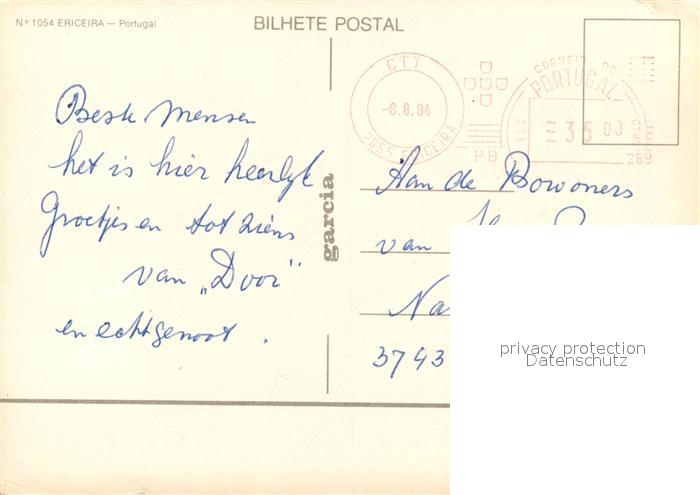 Nº 1054 ERICEIRA — Portugal
BILHETE POSTAL
CTT
-8.8.84
2655 ERICEIRA
PB
CORREIO DE
PORTUGAL
ESC
35 00
289
Beste mensen
het is hier heerlijk
Groetjes en tot ziens
van „Door"
en echtgenoot .
garcia
Aan de Bowoners
van
Na
3743
privacy protection
Datenschutz